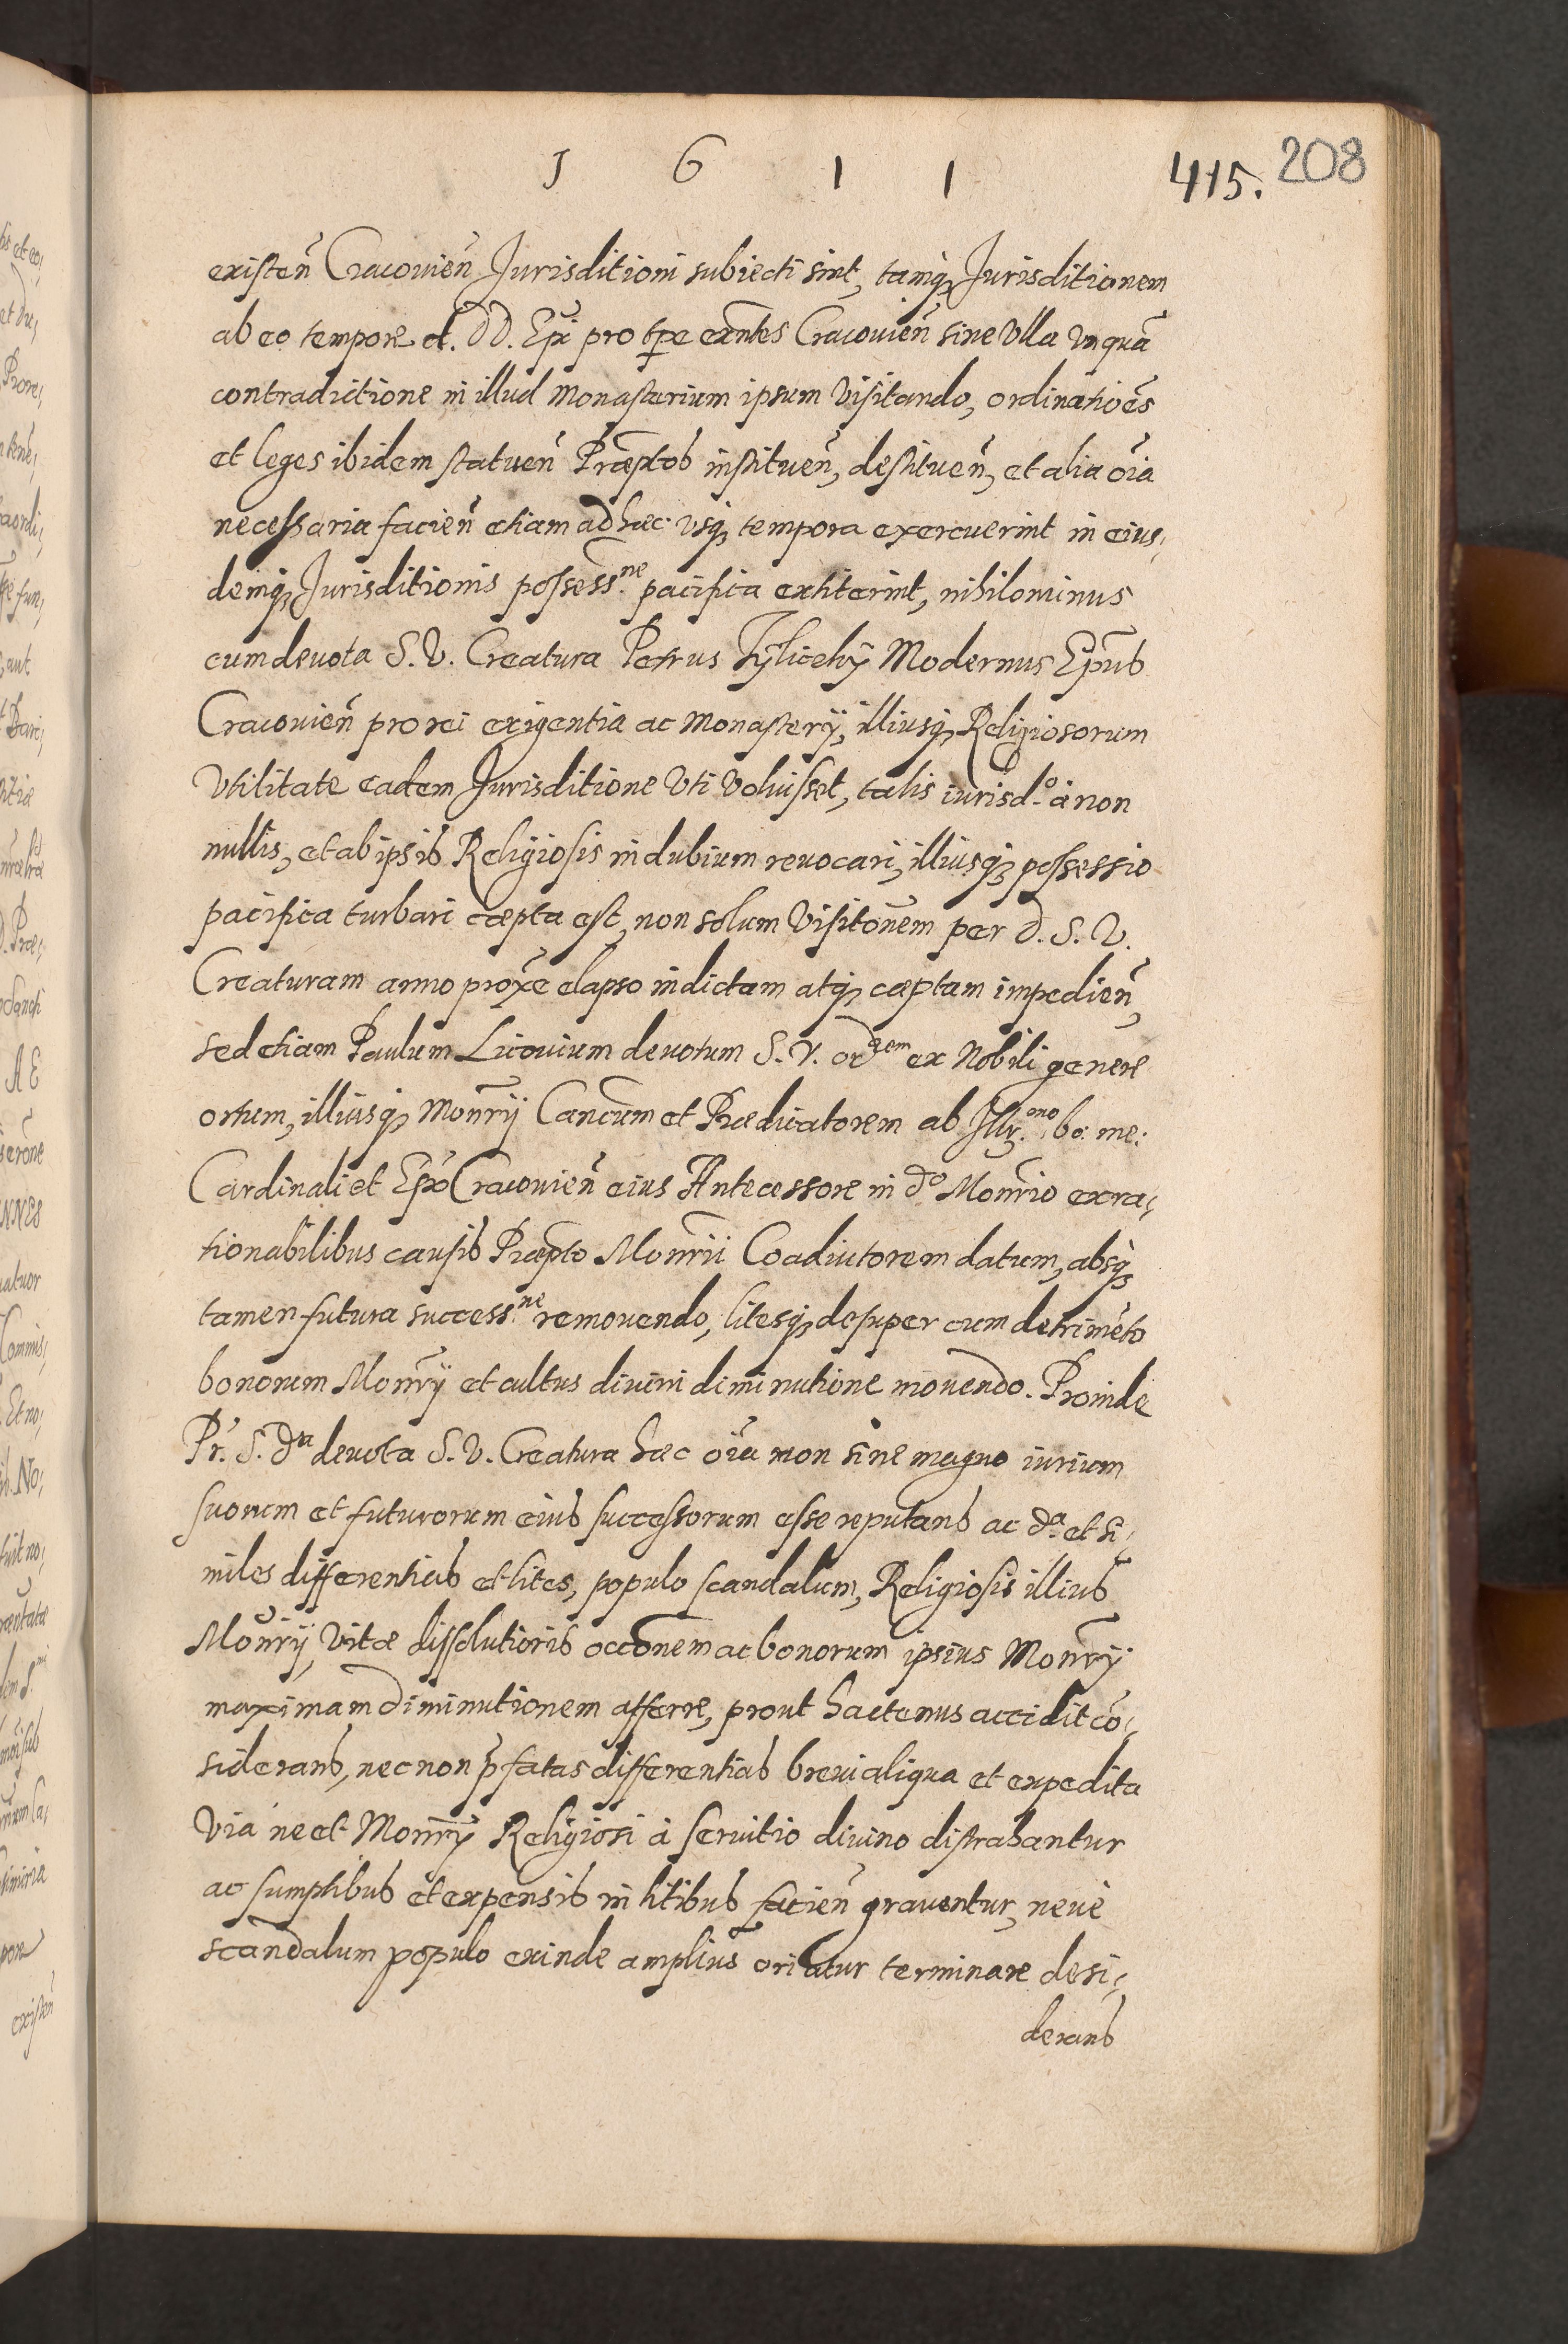 1 6 1 1 415. 208
existeñ Cracovieñ Jurisditioni subiecti sint, tamq₃ Jurisditionem
ab eo tempore d. DD. Epi pro tpe exñtes Cracovieñ sine Vlla vnquã
contradictione in illud Monasterium ipsum Visitando, ordinatiões
et leges ibidem statueñ Præptos instituen̄, destituen̄, et alia oĩa
necessaria facieñ etiam ad hæc vsq₃ tempora exercuerint in eius,
demq₃ Jurisditionis possess.ne pacifica extiterint, nihilominus
cum devota S. V. Creatura Petrus Tÿlicehÿ Modernus Epũs
Cracovieñ pro rei exigentia ac monasterÿ, illiusq₃ Religiosorum
Vtilitate eadem Jurisditione Vti Voluisset, talis iurisd.o à non
nullis, et ab ipsis Religiosis in dubium revocari, illiusq₃ possessio
pacifica turbari cæpta est, non solum Visitõnem per d. S. V.
Creaturam anno proxẽ elapso indictam atq₃ cæptam impedieñ,
sed etiam Paulum Licovium devotum S. V. or̃em ex Nobili genere
ortum, illiusq₃ Monrÿ Cancum et Prædicatorem ab Illr.mo bo: me:
Cardinali et Epõ Cracovieñ eius Antecessore in do Monrio ex ra,
tionabilibus causis Præpto Monrii Coadiutorem datum, absq₃
tamen futura success.ne removendo, litesq₃ desuper cum detrimẽto
bonorum Monrÿ et cultus divini diminutione movendo. Proinde
Pr. S. dta devota S. V. Creatura hæc oĩa non sine magno iurium
suorum et futurorum eius successorum esse reputans ac da et si,
miles differentias et lites, populo scandalum, Religiosis illius
Monrÿ, Vitæ dissolutioris occõnem ac bonorum ipsius Monrÿ
maximam diminutionem afferre, prout hactenus accidit cõ,
siderans, nec non p̃fatas differentias brevi aliqua et expedita
Via ne et Monrÿ Religiosi à servitio divino distrahantur
ac sumptibus et expensis in litibus facieñ graventur, nevè
scandalum populo exinde amplius oriatur terminare desi,
derans